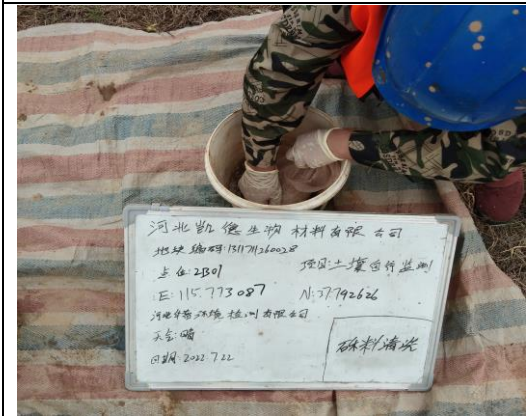 河北凯德生物材料有限公司
地块编码:1311711260028
点位:2B01 项目:土壤自行监测
E: 115.773087 N: 37.792626
河北华普环境检测有限公司
天气:晴
日期:2022.7.22
砾料清洗